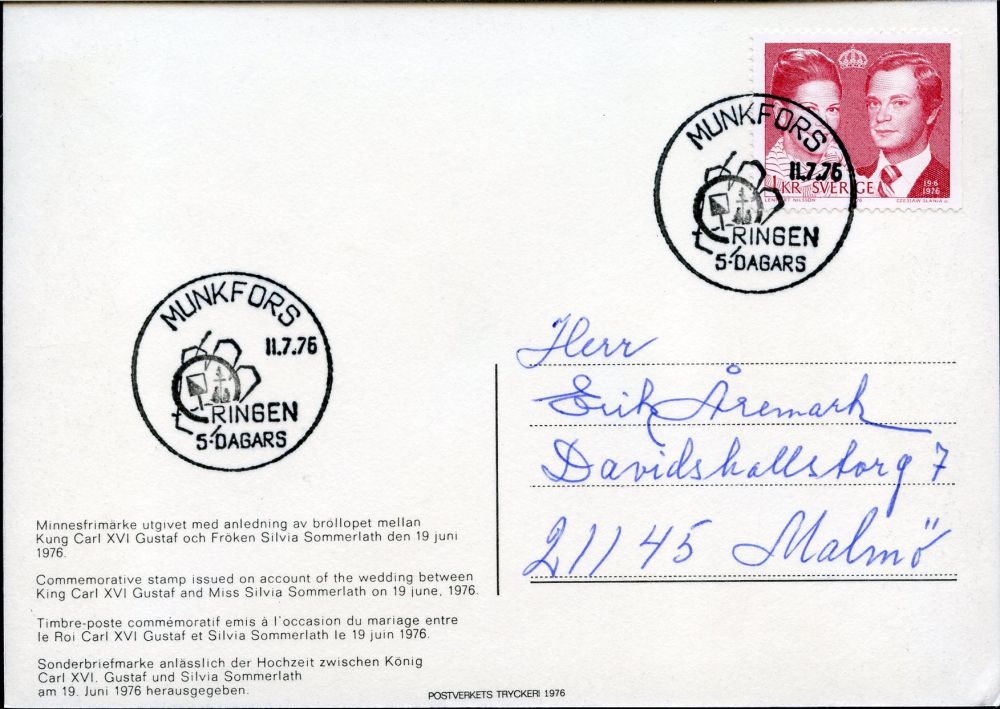 1 KR SVERIGE
19·6
1976
LENNART NILSSON
CZESLAW SLANIA
MUNKFORS
11.7.76
RINGEN
5-DAGARS
MUNKFORS
11.7.76
RINGEN
5-DAGARS
Herr
Erik Åremark
Davidshallstorg 7
21145 Malmö
Minnesfrimärke utgivet med anledning av bröllopet mellan
Kung Carl XVI Gustaf och Fröken Silvia Sommerlath den 19 juni
1976.
Commemorative stamp issued on account of the wedding between
King Carl XVI Gustaf and Miss Silvia Sommerlath on 19 june, 1976.
Timbre-poste commémoratif emis à l'occasion du mariage entre
le Roi Carl XVI Gustaf et Silvia Sommerlath le 19 juin 1976.
Sonderbriefmarke anlässlich der Hochzeit zwischen König
Carl XVI. Gustaf und Silvia Sommerlath
am 19. Juni 1976 herausgegeben.
POSTVERKETS TRYCKERI 1976